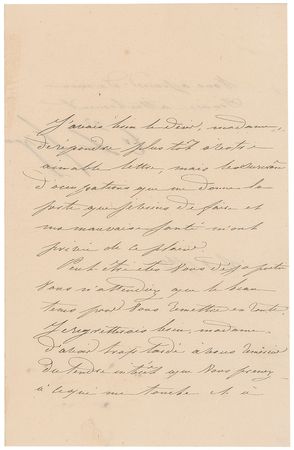 J'avais bien le désir, madame,
de répondre plus tôt à votre
aimable lettre, mais le surcroît
d'occupations que me donne la
perte que je viens de faire et
ma mauvaise santé m'ont
privée de ce plaisir.
Peut être êtes vous déjà partie
vous n'attendiez que le beau
tems pour vous remettre en route.
Je regretterais bien, madame
d'avoir trop tardé à vous remercier
du tendre intérêt que vous prenez
à ce qui me touche et à